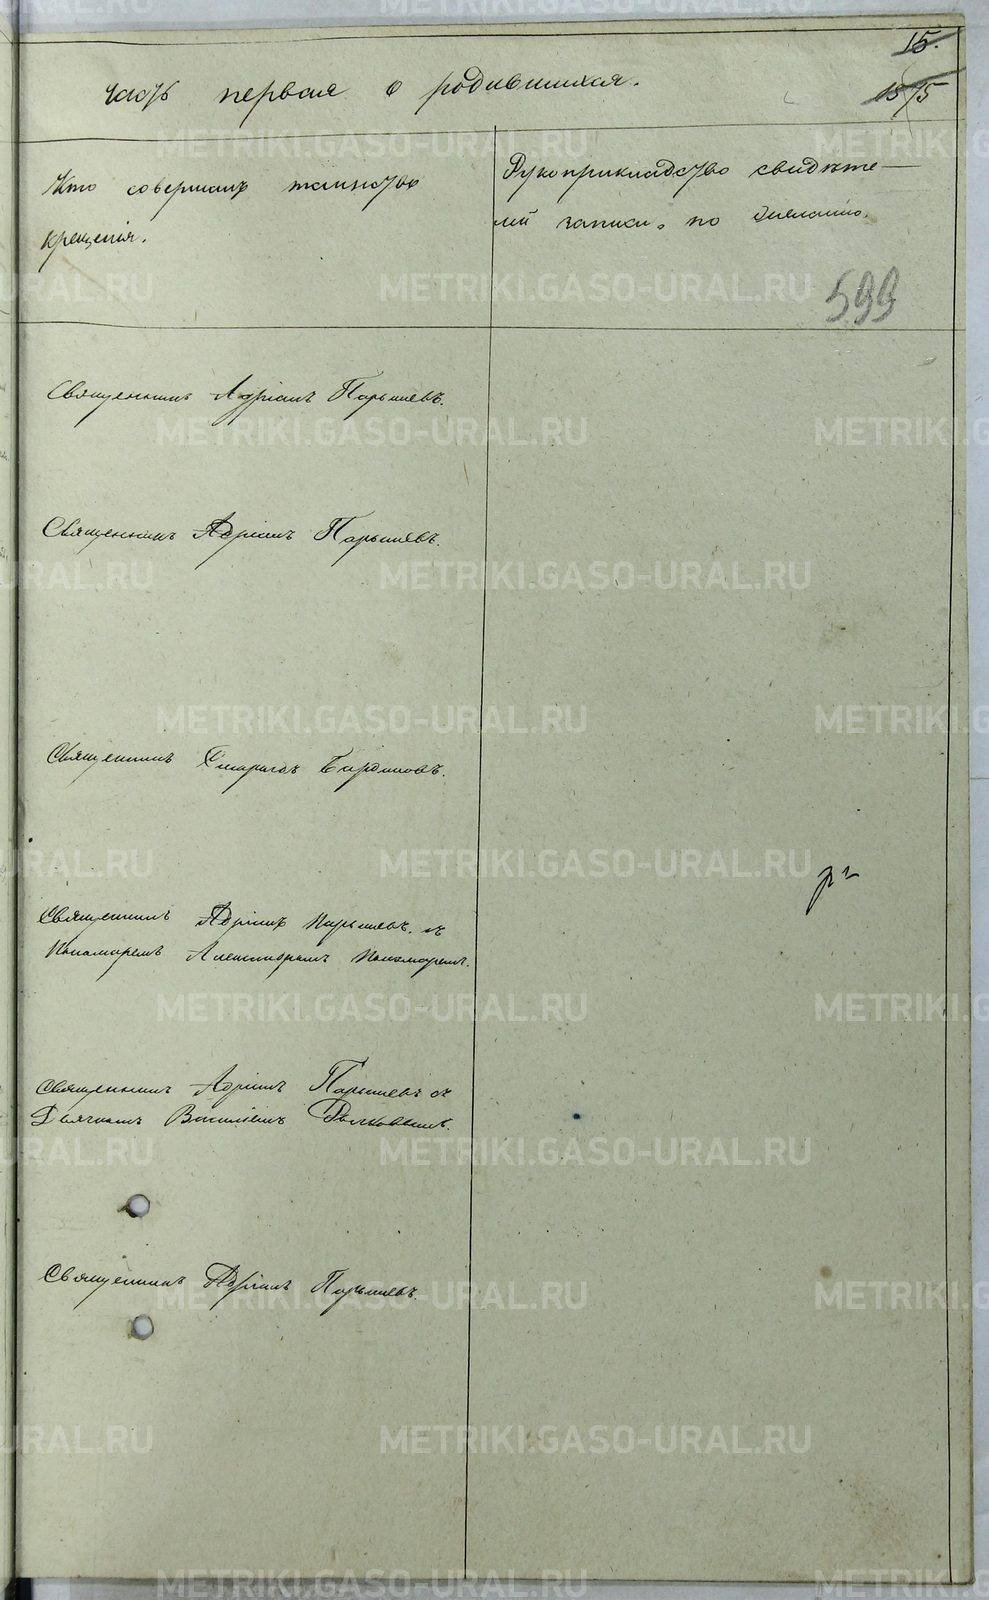 15.
15 75
Часть первая о родившихся.
Кто совершалъ таинство
крещенія.
Рукоприкладство свидѣте-
лей записи по желанію.
599
Священникъ Адріанъ Парышевъ.
Священникъ Адріанъ Парышевъ.
Священникъ Смарагдъ
Священникъ Адріанъ Парышевъ съ
Пономаремъ Александромъ Пономаревымъ.
Священникъ Адріанъ Парышевъ съ
Дьячкомъ Василіемъ
Священникъ Адріанъ Парышевъ.
METRIKI.GASO-URAL.RU